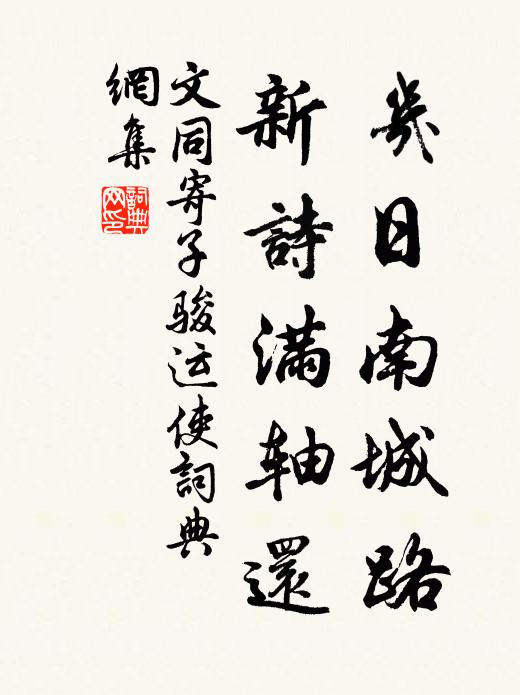 幾日南城路
新詩滿軸還
文同寄子駿运使詞典
網集
詞典网印